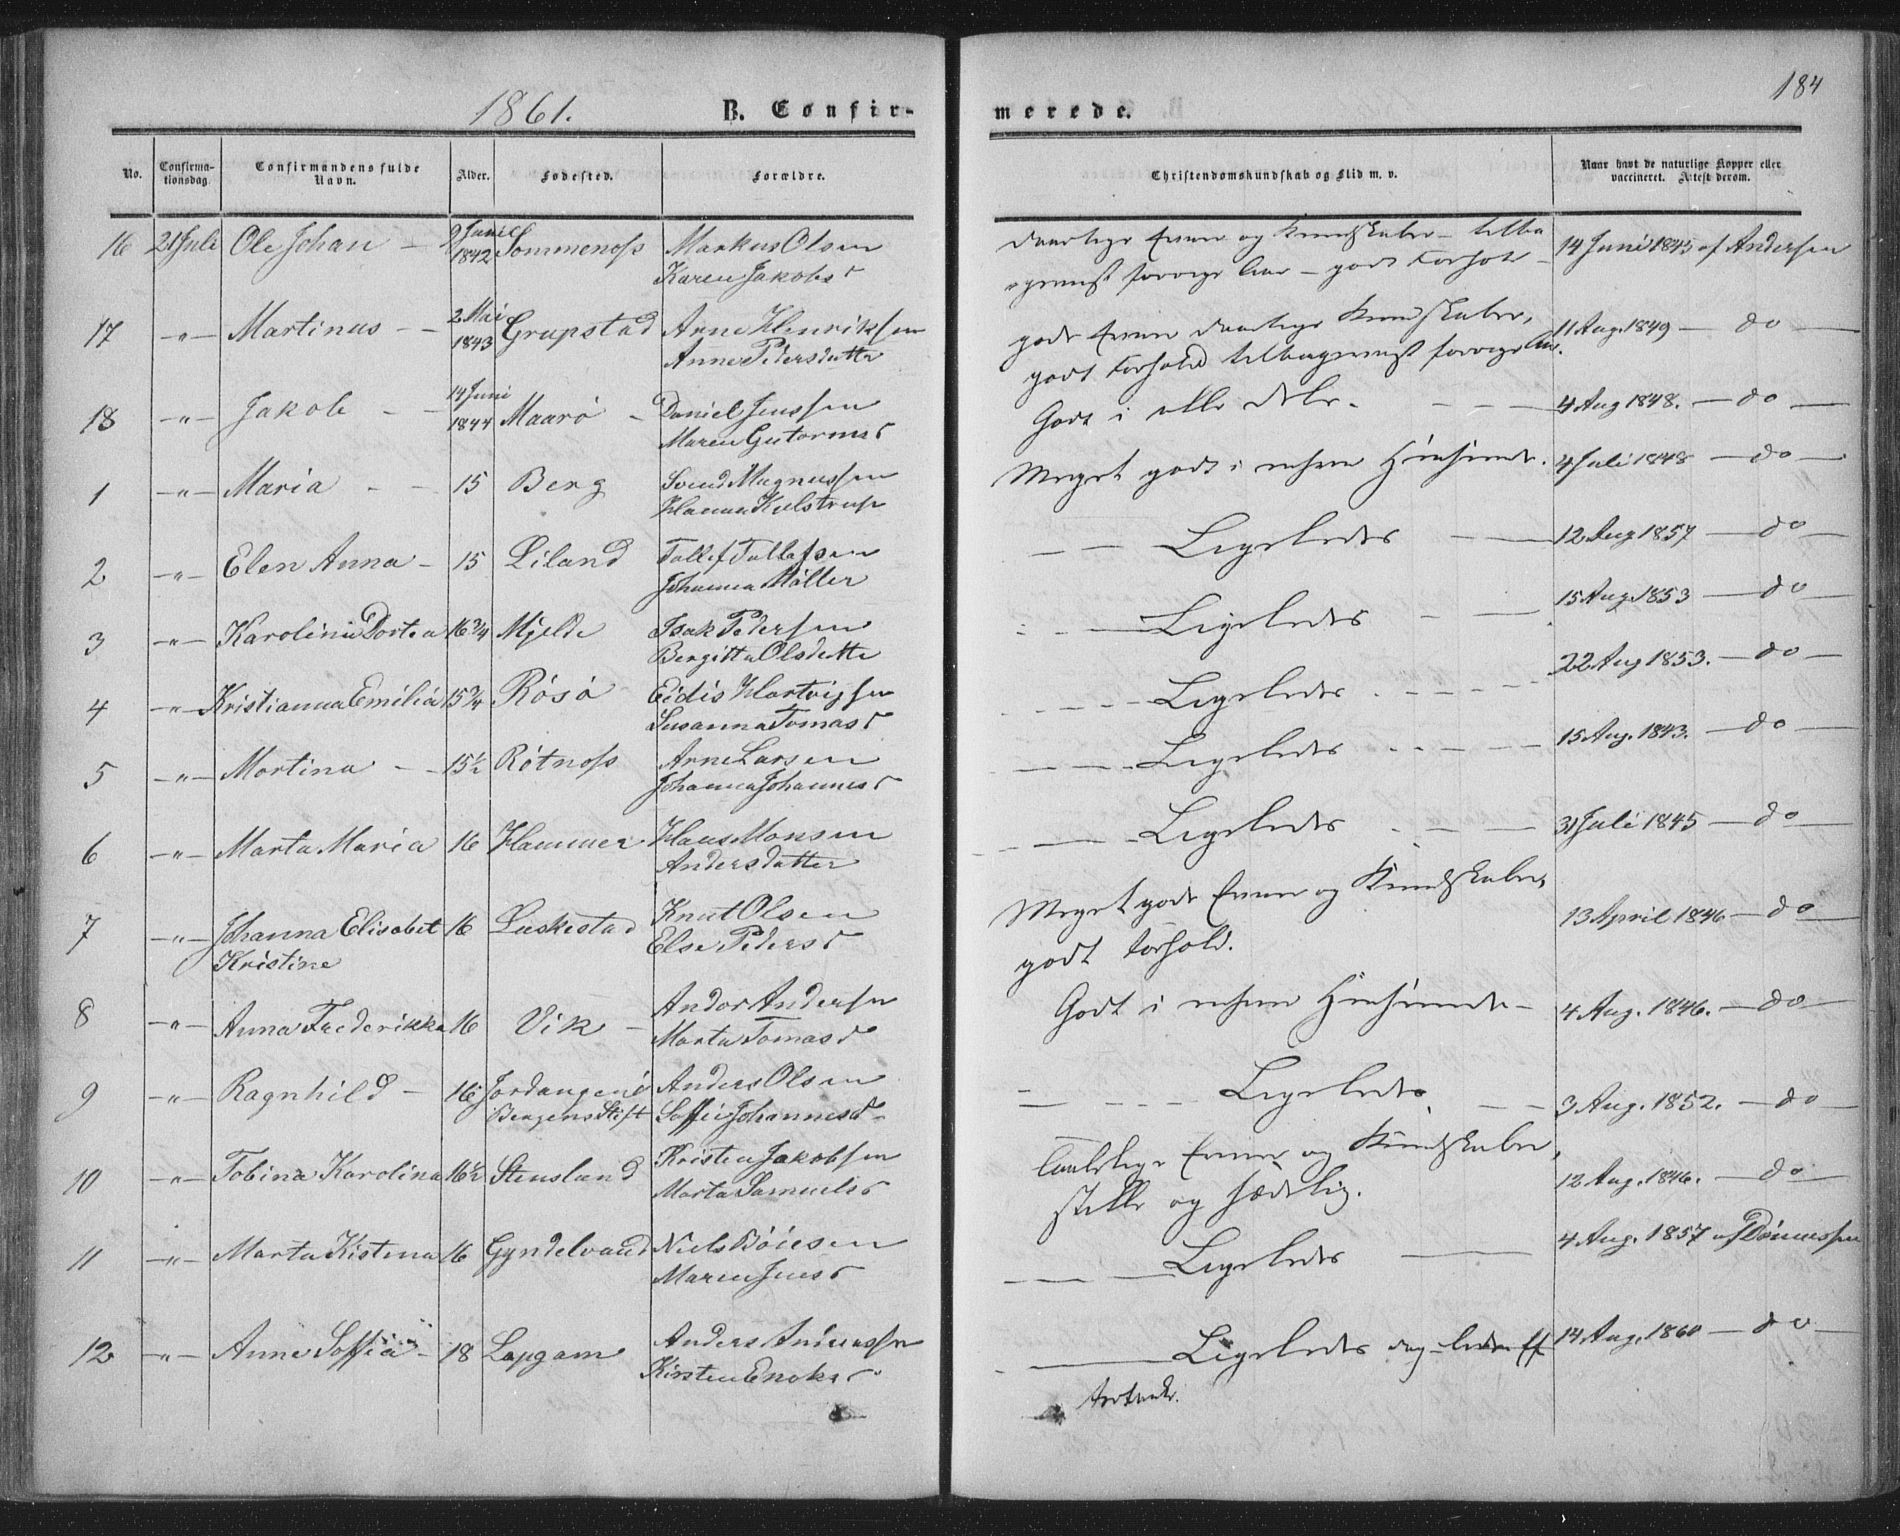 184
1861.
B. Confir-
merede.
No.
Confirma-
tionsdag.
Confirmandens fulde
Navn.
Alder.
Fødested.
Forældre.
Christendomskundskab og Flid m. v.
Naar havt de naturlige Kopper eller
vaccineret. Attest derom.
16 21 Juli Ole Johan — 9 Juni 1842 Sommenofs Markus Olsen
Karen Jakobsd
daarlige Evner og Kundskaber — tilba
gevist forrige Aar — godt Forhold —
14 Juni 1845 af Andersen
17 —"— Martinus — 2 Mai 1843 Grupstad Arne Henriksen
Anne Pedersdatter
gode Evner daarlige Kundskaber,
godt Forhold tilbagevist forrige Aar.
11 Aug. 1849 — do —
18 —"— Jakob — 14 Juni 1844 Maarø — Daniel Jenssen
Maren Gutormsd
Godt i alle dele.
4 Aug 1848. — do —
1 —"— Maria — 15 Berg Svend Magnussen
Hanna Kulstrup
Meget godt i enhver Henseende.
4 Juli 1848 — do —
2 —"— Elen Anna — 15 Liland Tollef Tollefsen
Johanna Møller
— — Ligeledes — —
12 Aug 1857 — do —
3 —"— Karolina Dortea 16 3/4 Mjelde Isak Pedersen
Bergitta Olsdatte
— — Ligeledes — —
15 Aug. 1853 — do —
4 —"— Kristianna Emilia 15 3/4 Røsø Eidis Hartvigsen
Susanna Tomasd
— — Ligeledes — —
22 Aug 1853. — do —
5 —"— Martina — 15 1/2 Røtnofs Arne Larsen
Johanna Johannesd
— — Ligeledes — —
15 Aug. 1843. — do —
6 —"— Marta Maria 16 Hammer Hans Monsen
Andersdatter
— — Ligeledes — —
31 Juli 1845 — do —
7 —"— Johanna Elisabet 16 Leikestad Knut Olsen
Kristine Else Pedersd
Meget gode Evner og Kundskaber,
godt Forhold.
13 April 1846 — do —
8 —"— Anna Frederikka 16 Vik — Andor Andersen
Marta Tomasd
Godt i enhver Henseende —
4 Aug. 1846. — do —
9 —"— Ragnhild — 16 Anders Olsen
Bergens Stift Soffie Johannesd
— — Ligeledes — —
3 Aug. 1852. — do —
10 —"— Tobina Karolina 16 1/2 Stensland Kristen Jakobsen
Marta Samuelsd
taalelige Evner og Kundskaber,
stille og sædelig.
12 Aug. 1846. — do —
11 —"— Marta Kistina 16 Gyndelvand Niels Bóiesen
Maren Jensd
— — Ligeledes —
4 Aug. 1857 af
12 —"— Anne Soffia — 18 Lapgam Anders Andreassen
Kirsten Enoksd
— Ligeledes
14 Aug. 1860 — do —